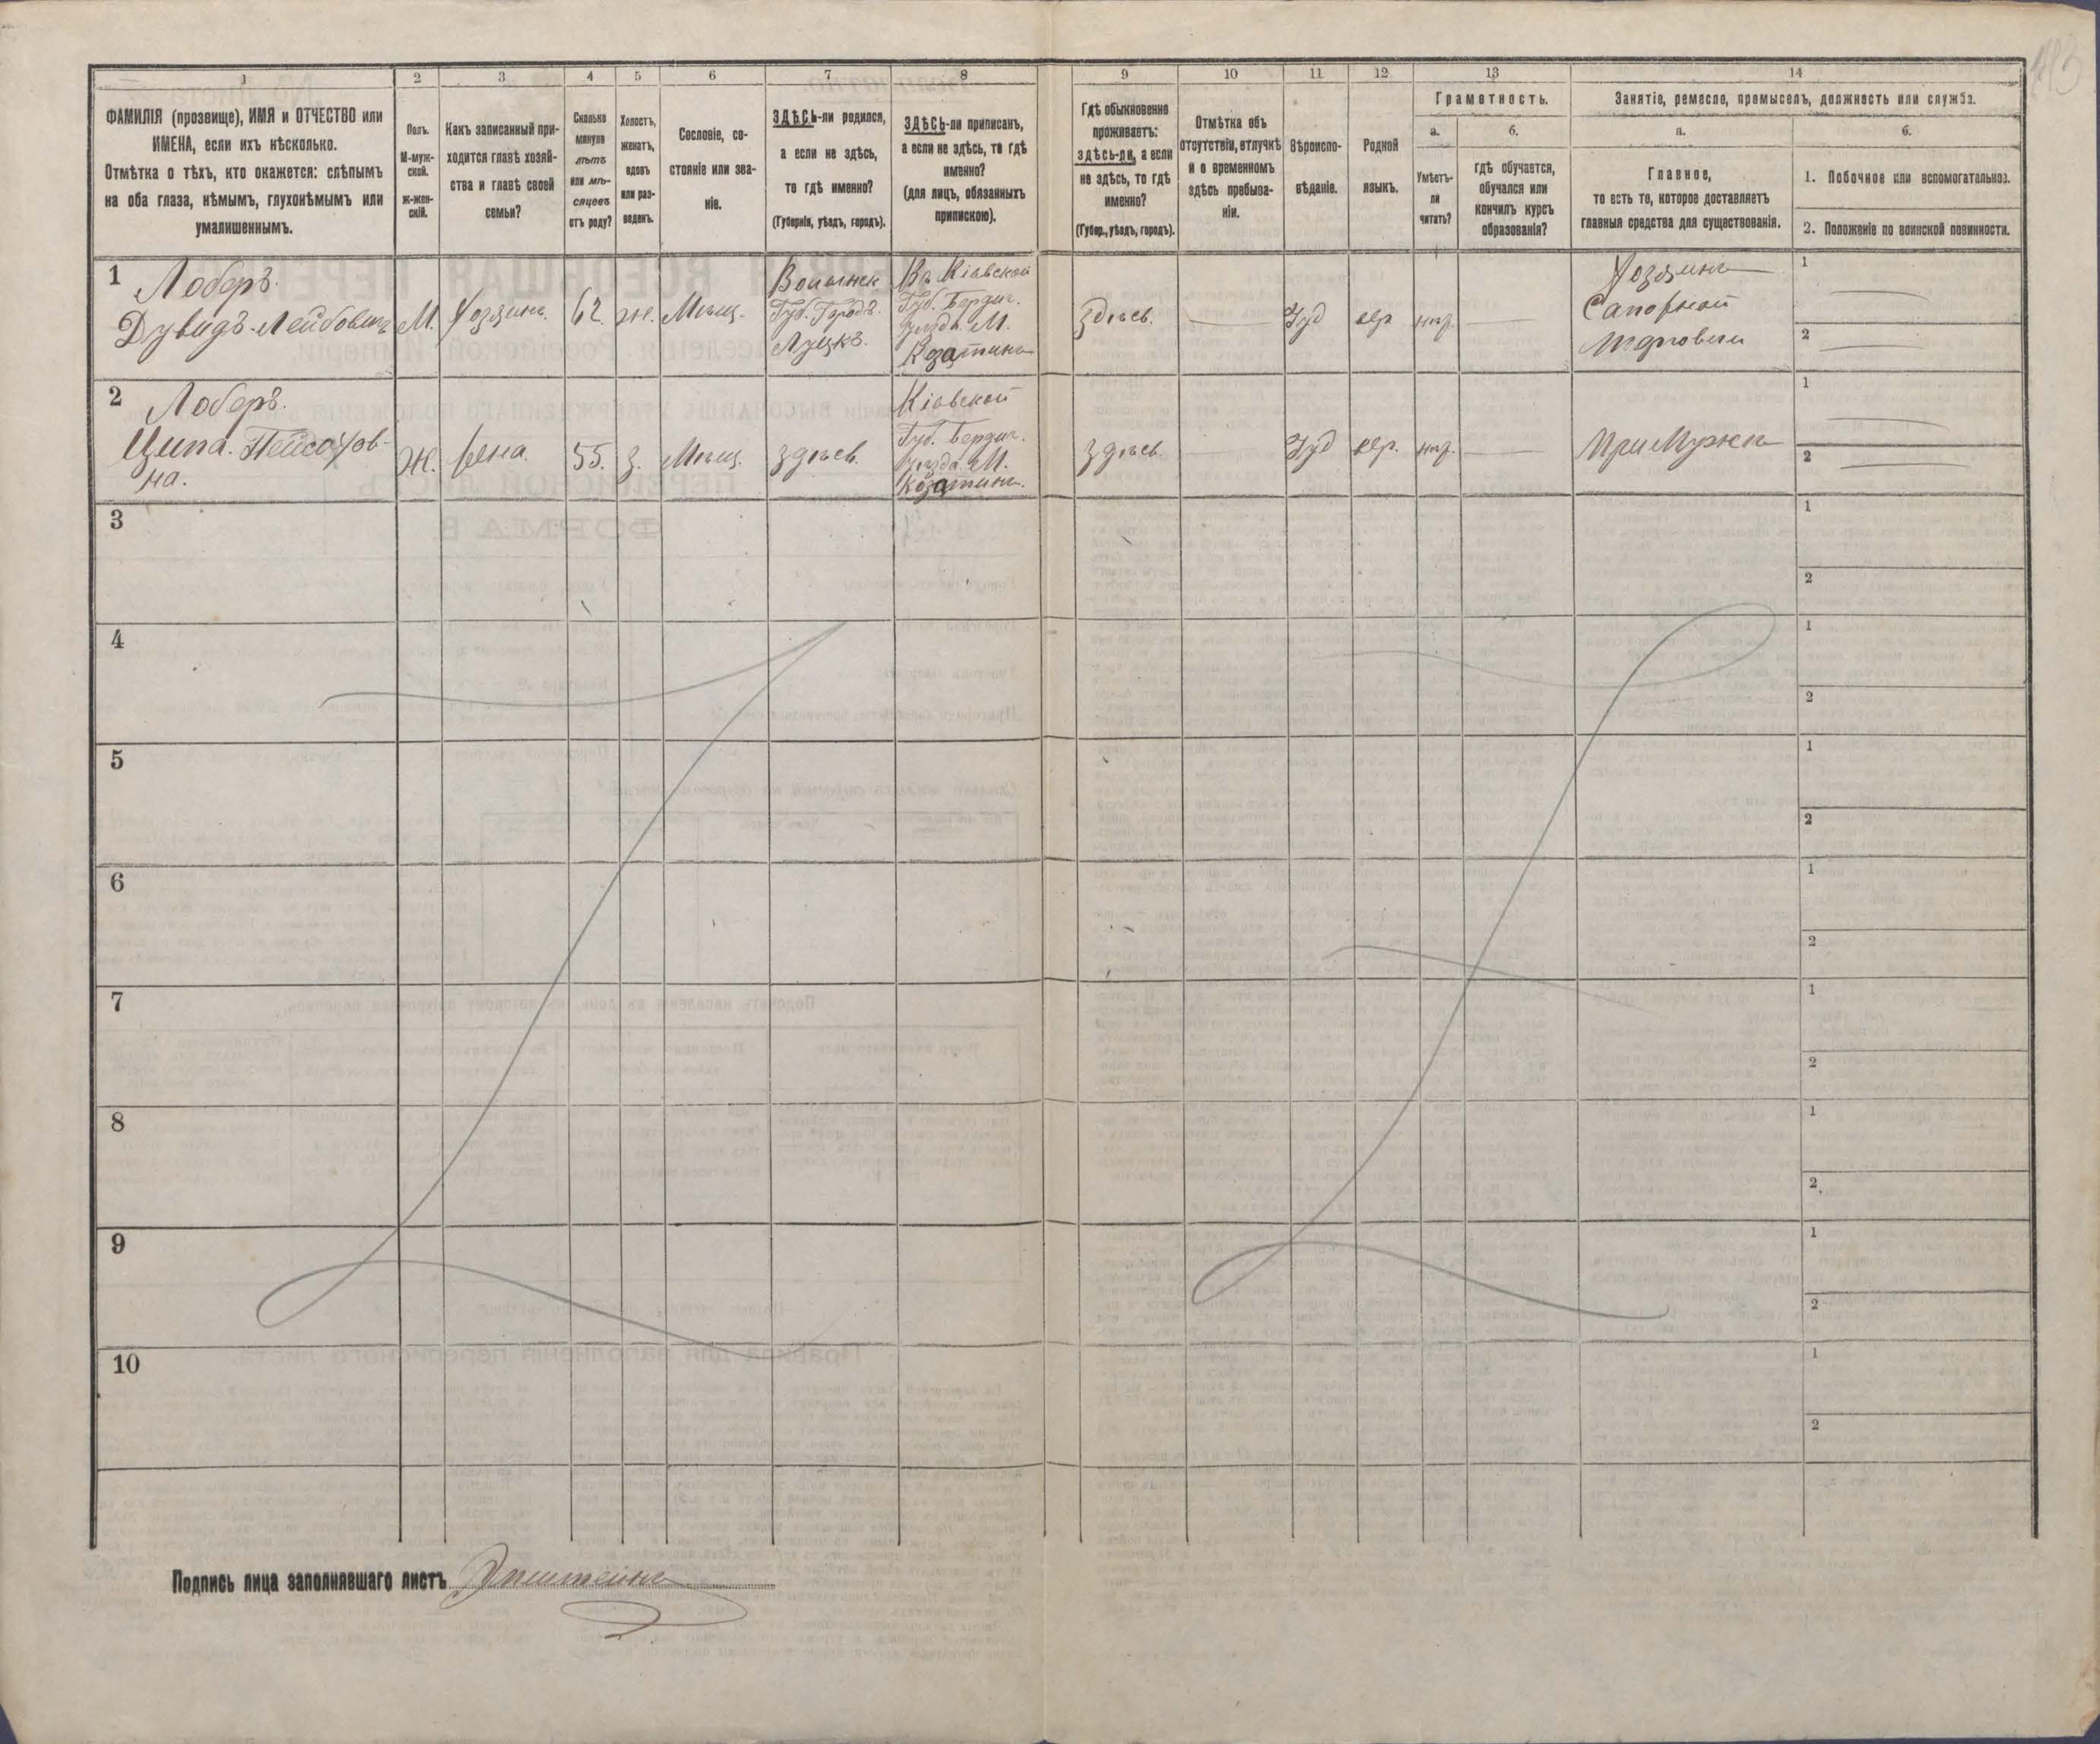 1 2 3 4 5 6 7 8 9 10 11 12 13 14
ФАМИЛІЯ (прозвище), ИМЯ и ОТЧЕСТВО или
ИМЕНА, если ихъ нѣсколько.
Отмѣтка о тѣхъ, кто окажется: слѣпымъ
на оба глаза, нѣмымъ, глухонѣмымъ или
умалишеннымъ.
Полъ.
М-муж-
ской.
ж-жен-
скій.
Какъ записанный при-
ходится главѣ хозяй-
ства и главѣ своей
семьи?
Сколько
минуло
лѣтъ
или мѣ-
сяцевъ
отъ роду?
Холостъ,
женатъ,
вдовъ
или раз-
веденъ.
Сословіе, со-
стояніе или зва-
ніе.
ЗДѢСЬ-ли родился,
а если не здѣсь,
то гдѣ именно?
(Губернія, уѣздъ, городъ).
ЗДѢСЬ-ли приписанъ,
а если не здѣсь, то гдѣ
именно?
(для лицъ, обязанныхъ
припискою).
Гдѣ обыкновенно
проживаетъ:
здѣсь-ли, а если
не здѣсь, то гдѣ
именно?
(Губер., уѣздъ, городъ).
Отмѣтка объ
отсутствіи, отлучкѣ
и о временномъ
здѣсь пребыва-
ніи.
Вѣроиспо-
вѣданіе.
Родной
языкъ.
Грамотность.
а.
Умѣетъ-
ли
читать?
б.
гдѣ обучается,
обучался или
кончилъ курсъ
образованія?
Занятіе, ремесло, промыселъ, должность или служба.
а.
Главное,
то есть то, которое доставляетъ
главныя средства для существованія.
б.
1. Побочное или вспомогательное.
2. Положеніе по воинской повинности.
1
Лоберъ.
Дувидъ-Лейбовичъ
М.
Хозяинъ.
62.
ж.
Мѣщ.
Волынск
Губ. Городъ.
Луцкъ.
Въ Кіевской
Губ. Бердич.
уѣзда. М.
Козатинъ
здѣсь.
Іуд
евр
Хозяинъ
Сапожной
1
2
2
Лоберъ.
Ципа. Пейсахов-
на.
Ж.
жена.
55.
з.
Мѣщ.
здѣсь.
Кіевской
Губ. Бердич.
уѣзда. М.
Козатинъ.
здѣсь
Іуд
евр.
При Мужѣ
1
2
3
1
2
4
1
2
5
1
2
6
1
2
7
1
2
8
1
2
9
1
2
10
1
2
Подпись лица заполнявшаго листъ Эпштейнъ